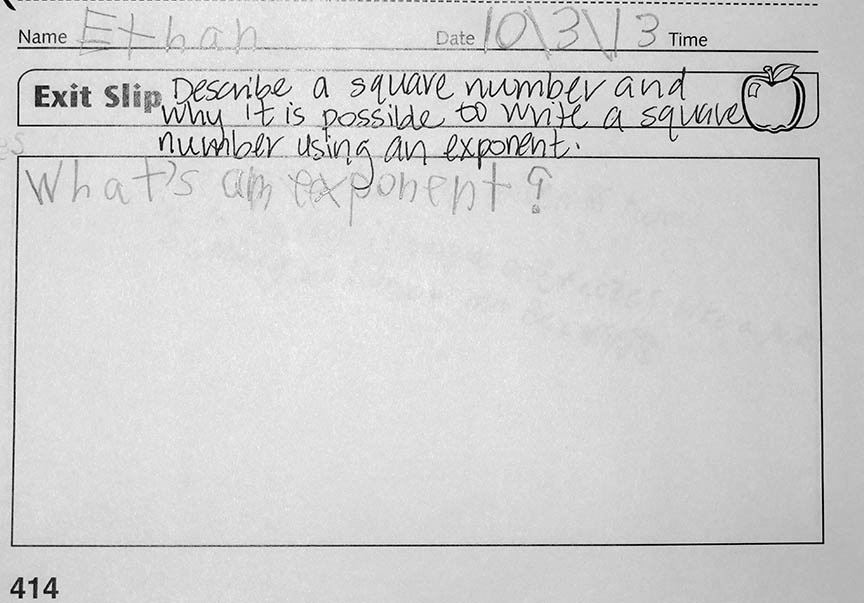 Name Ethan Date 10\3\13 Time
Exit Slip Describe a square number and
why it is possible to write a square
number using an exponent.
What's an exponent?
414